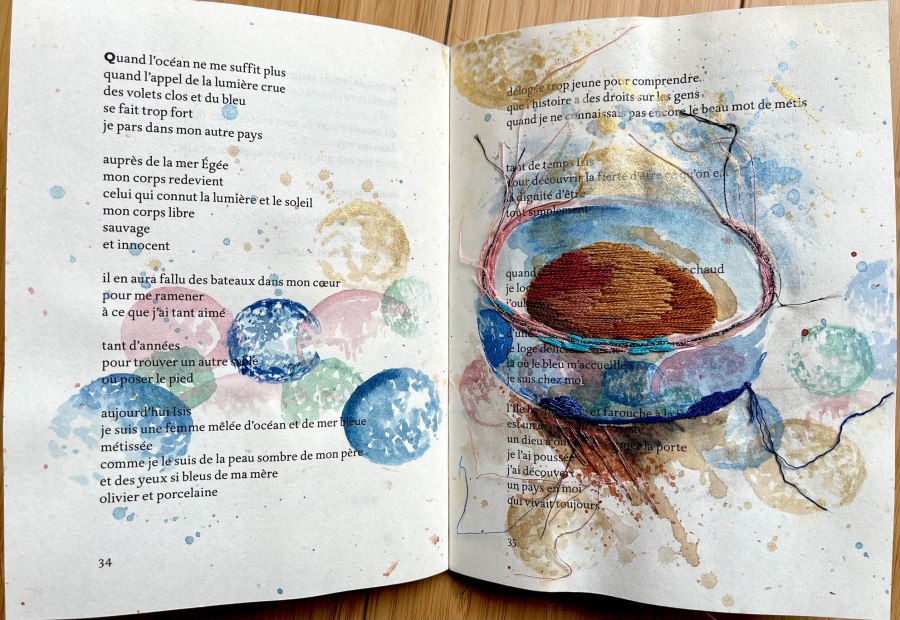 Quand l'océan ne me suffit plus
quand l'appel de la lumière crue
des volets clos et du bleu
se fait trop fort
je pars dans mon autre pays
auprès de la mer Égée
mon corps redevient
celui qui connut la lumière et le soleil
mon corps libre
sauvage
et innocent
il en aura fallu des bateaux dans mon cœur
pour me ramener
à ce que j'ai tant aimé
tant d'années
pour trouver un autre sable
où poser le pied
aujourd'hui Isis
je suis une femme mêlée d'océan et de mer bleue
métissée
comme je le suis de la peau sombre de mon père
et des yeux si bleus de ma mère
olivier et porcelaine
34
délogée trop jeune pour comprendre
que l'histoire a des droits sur les gens
quand je ne connaissais pas encore le beau mot de métis
tant de temps Isis
pour découvrir la fierté d'être ce qu'on est
la dignité d'être
tout simplement
quand chaud
je
je loge
là où le bleu m'accueille
je suis chez moi
et farouche à la
est un
un dieu la porte
je l'ai poussée
j'ai découvert
un pays en moi
qui vivait toujours
35